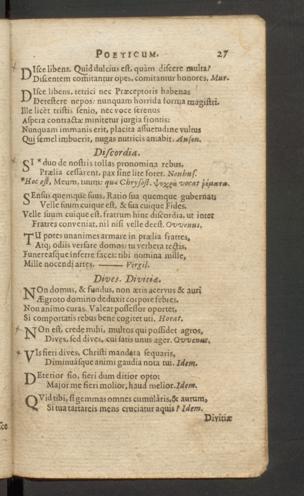 POETICUM. 27
DIsce libens. Quid dulcius est, quàm discere multa?
Discentem comitantur opes, comitantur honores. Mur.
DIsce libens, tetrici nec Præceptoris habenas
Detestere nepos: nunquam horrida forma magistri.
Ille licèt tristis senio, nec voce serenus
Aspera contractæ minitetur jurgia frontis:
Nunquam immanis erit, placita assuetudine vultus
Qui semel imbuerit, nugas nutricis amabit. Auson.
Discordia.
SI * duo de nostris tollas pronomina rebus,
Prælia cessarent, pax sine lite foret. Northusf.
*Hoc est, Meum, tuum: quæ Chrysost. ψυχρὰ vocat ῥήματα.
SEnsus quemque suus, Ratio sua quemque gubernat:
Velle suum cuique est, & sua cuique Fides.
Velle suum cuique est, fratrum hinc discordia, ut inter
Fratres conveniat, nil nisi velle deest. Ovvenus.
TU potes unanimes armare in prælia fratres,
Atq; odiis versare domos: tu verbera tectis,
Funereasque inferre faces: tibi nomina mille,
Mille nocendi artes. —— Virgil.
Dives. Divitiæ.
NOn domus, & fundus, non æris acervus & auri
Ægroto domino deduxit corpore febres.
Non animo curas. Valeat possessor oportet,
Si comportatis rebus bene cogitet uti. Horat.
NOn est, crede mihi, multos qui possidet agros,
Dives, sed dives, cui satis unus ager. Ovvenus.
VIs fieri dives, Christi mandata sequaris,
Diminuasque animi gaudia nota tui. Idem.
DEterior fio, fieri dum ditior opto:
Major me fieri molior, haud melior. Idem.
QVid tibi, si gemmas omnes cumulâris, & aurum,
Si tua tartareis mens cruciatur aquis? Idem.
Divitiæ